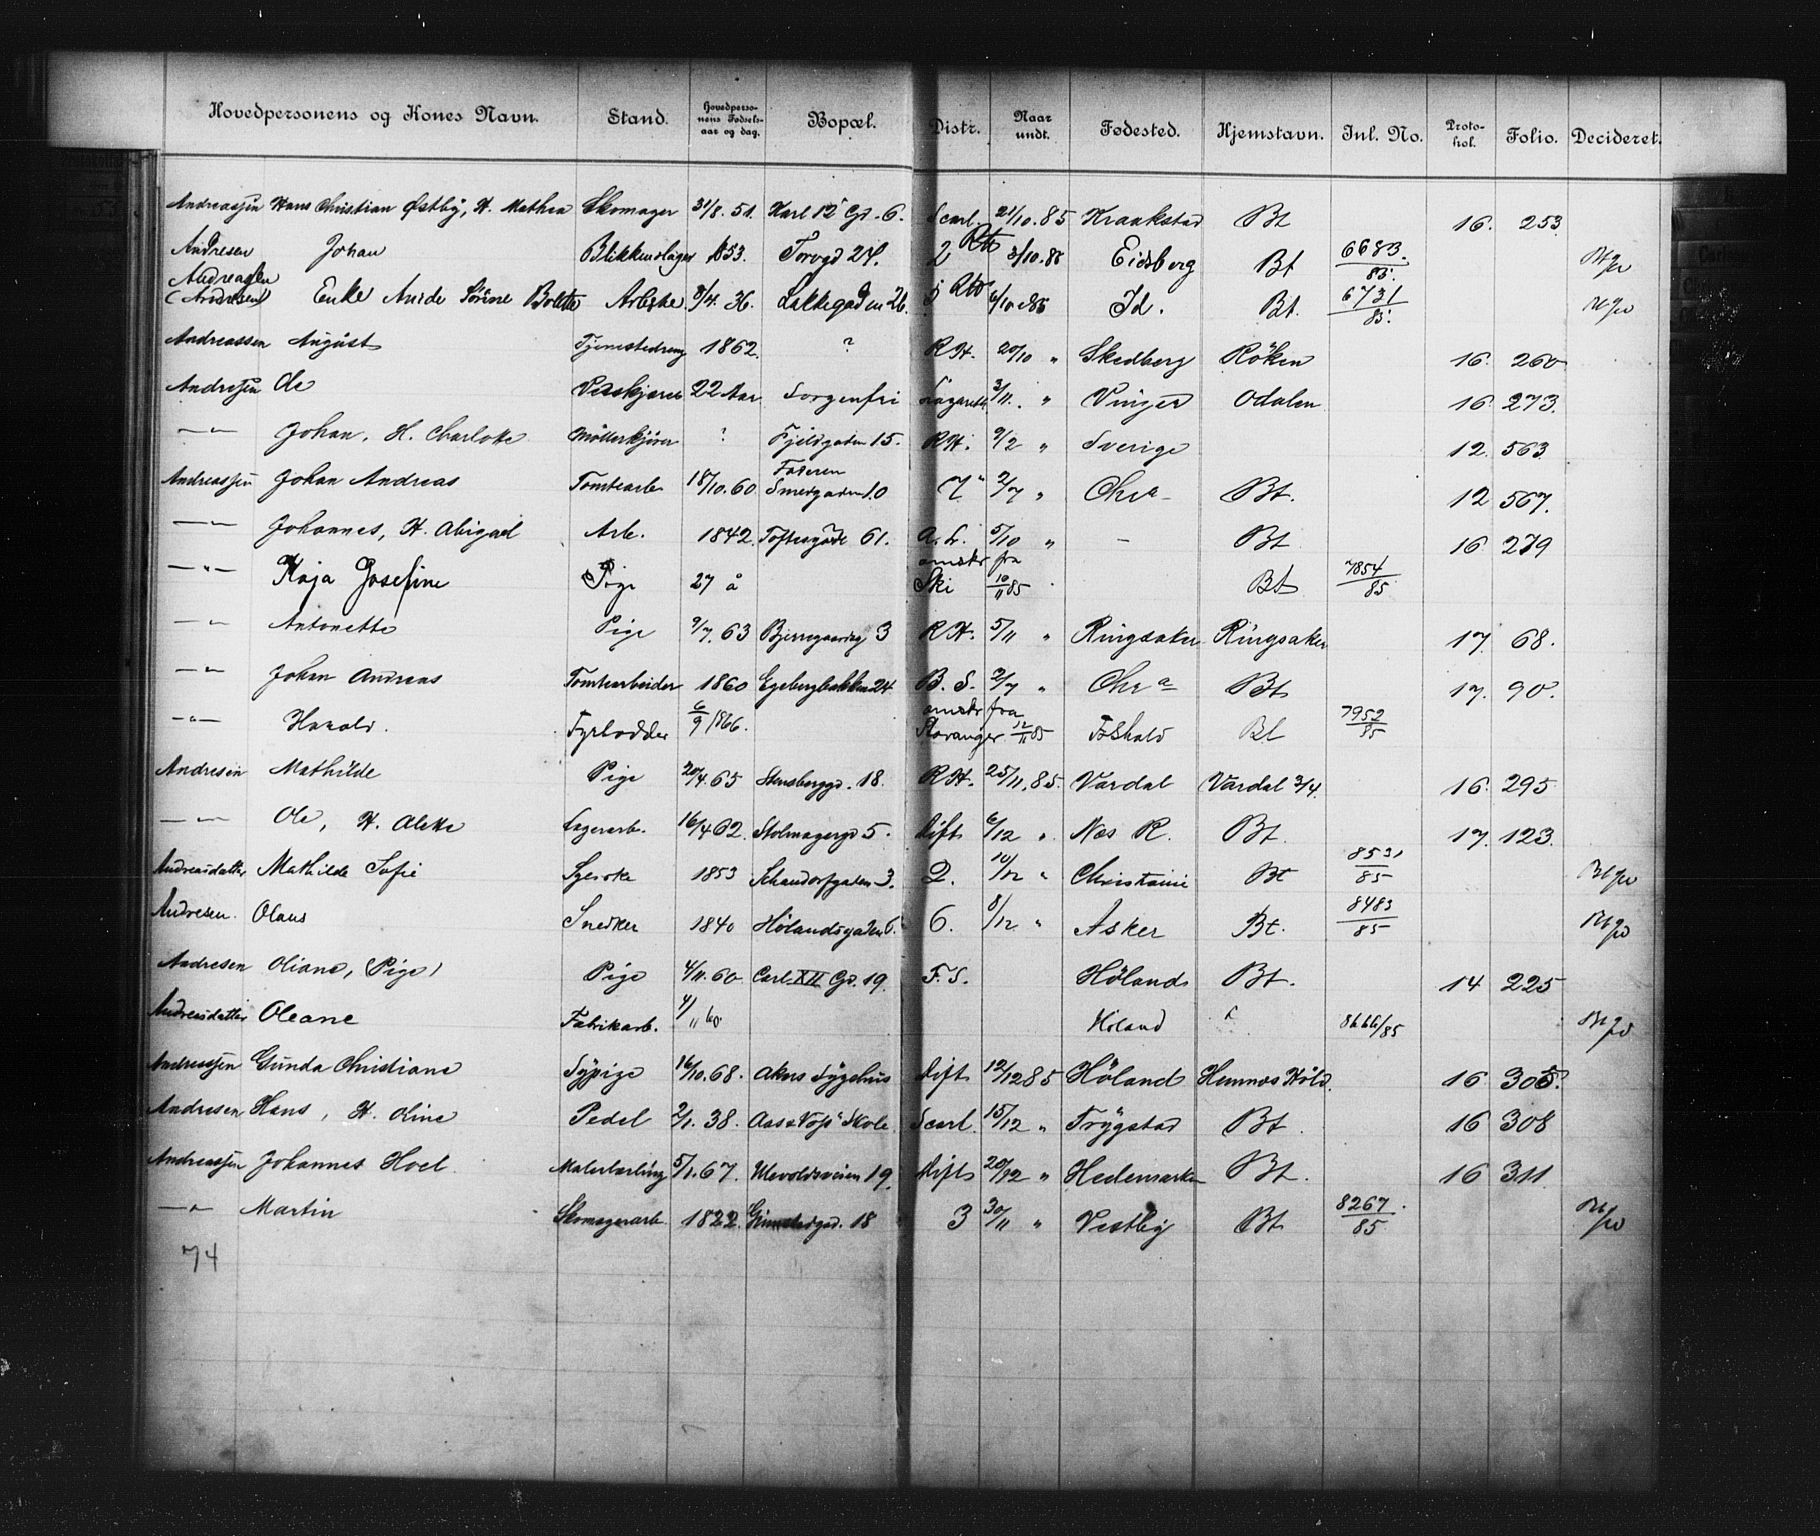 Hovedpersonens og Kones Navn. Stand. Hovedpersonens Fødselsaar og dag. Bopæl. Distr. Naar undt. Fødested. Hjemstavn. Inl. No. Protokol. Folio. Decideret.
Andreassen Hans Christian Østby, H. Mathea Skomager 31/8. 51. Karl 12 Gd. 6. Scarl. 21/10. 85 Kraakstad Bt 16. 253
Andresen Johan Blikkenslager 1853. Torvgd 24. 2 3/10. 85 Eidsberg Bt 6683/85.
Andreasen (Andresen) Enke Anide Sørine Arbske. 3/4. 36. Lakkegaden 26. 5 6/10 85 Id. Bt. 6731/85.
Andreassen August Tjenestedreng 1862. ? R.H. 20/10 " Skedberg Röken 16. 260
Andresen Ole Vedskjærer 22 Aar Sorgenfri Lazareth 3/11. " Vinger Odalen 16. 273.
— " — Johan, H. Charlotte Möllerkjörer ? Fjeldgaden 15. R.H. 9/2 " Sverige 12. 563
Andreassen Johan Andreas Tomtearb 18/10. 60. Faderen Smedgaden 10 7 2/7 " Chra Bt. 12 567.
— " — Johannes, H. Abigael Arb. 1842. Toftesgade 61. A.L. 5/10 " - Bt. 16 279
— " — Kaja Josefine Pige 27 å omskr fra Ski 10/11 85 Bt 7854/85
— " — Antonette Pige 9/7. 63 Bjerregaardsg 3 R.H. 5/11 " Ringsaker Ringsaker 17. 68.
— " — Johan Andreas Tomtearbeider 1860 Egebergbakken 24 B.S. 2/7 " Chra Bt 17. 90.
— " — Harald. Fyrbødder 6/9 1866. omskr fra Stavanger 12/11 85 Fdshald Bt 7952/85
Andresen Mathilde Pige 20/4. 65 Stensberggd. 18. R.H. 25/11. 85. Vardal Vardal 3/4. 16. 295
— " — Ole, H. Alette Lagerarb. 16/4 62. Stolmagergd 5. Dift 6/12 " Næs R. Bt. 17. 123.
Andreasdatter Mathilde Sofie Syerske 1853 Schandorfgaden 3. 2. 10/12 " Christania Bt 8531/85
Andresen. Olaus Snedker 1840 Hølandsgaden 6. 6. 8/12 " Asker Bt. 8483/85
Andresen Oliane, (Pige) Pige 4/11. 60 Carl XII Gd. 19. F.S. Höland Bt. 14 225
Andreasdatter Oleane Fabrikarb. 4/11 60 Høland " 8666/85
Andreassen Gunda Christiane Sypige 16/10. 68. Akers Sygehus Dift 12/12 85 Höland Hemnæs Höld. 16 306.
Andresen Hans, H. Oline Pedel 2/1. 38. Aas & Vos' Skole Scarl. 15/12 " Trygstad Bt. 16 308
Andreassen Johannes Hoel Malerlærling 5/1. 67. Ulevoldsveien 19. Dift 20/12 " Hedemarken Bt. 16 311
— " — Martin Skomagerarb. 1822. Grimstadgd. 18 3 30/11 " Vestby Bt 8267/85
74